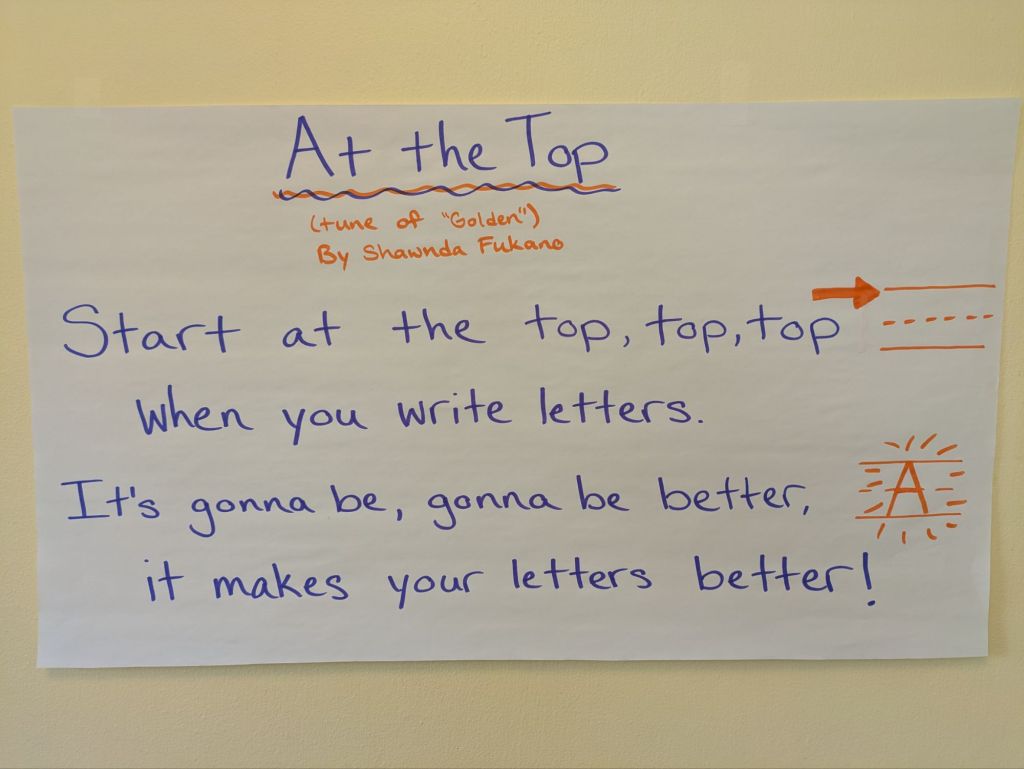 At the Top
(tune of "Golden")
By Shawnda Fukano
Start at the top, top, top
when you write letters.
It's gonna be, gonna be better,
A
it makes your letters better!